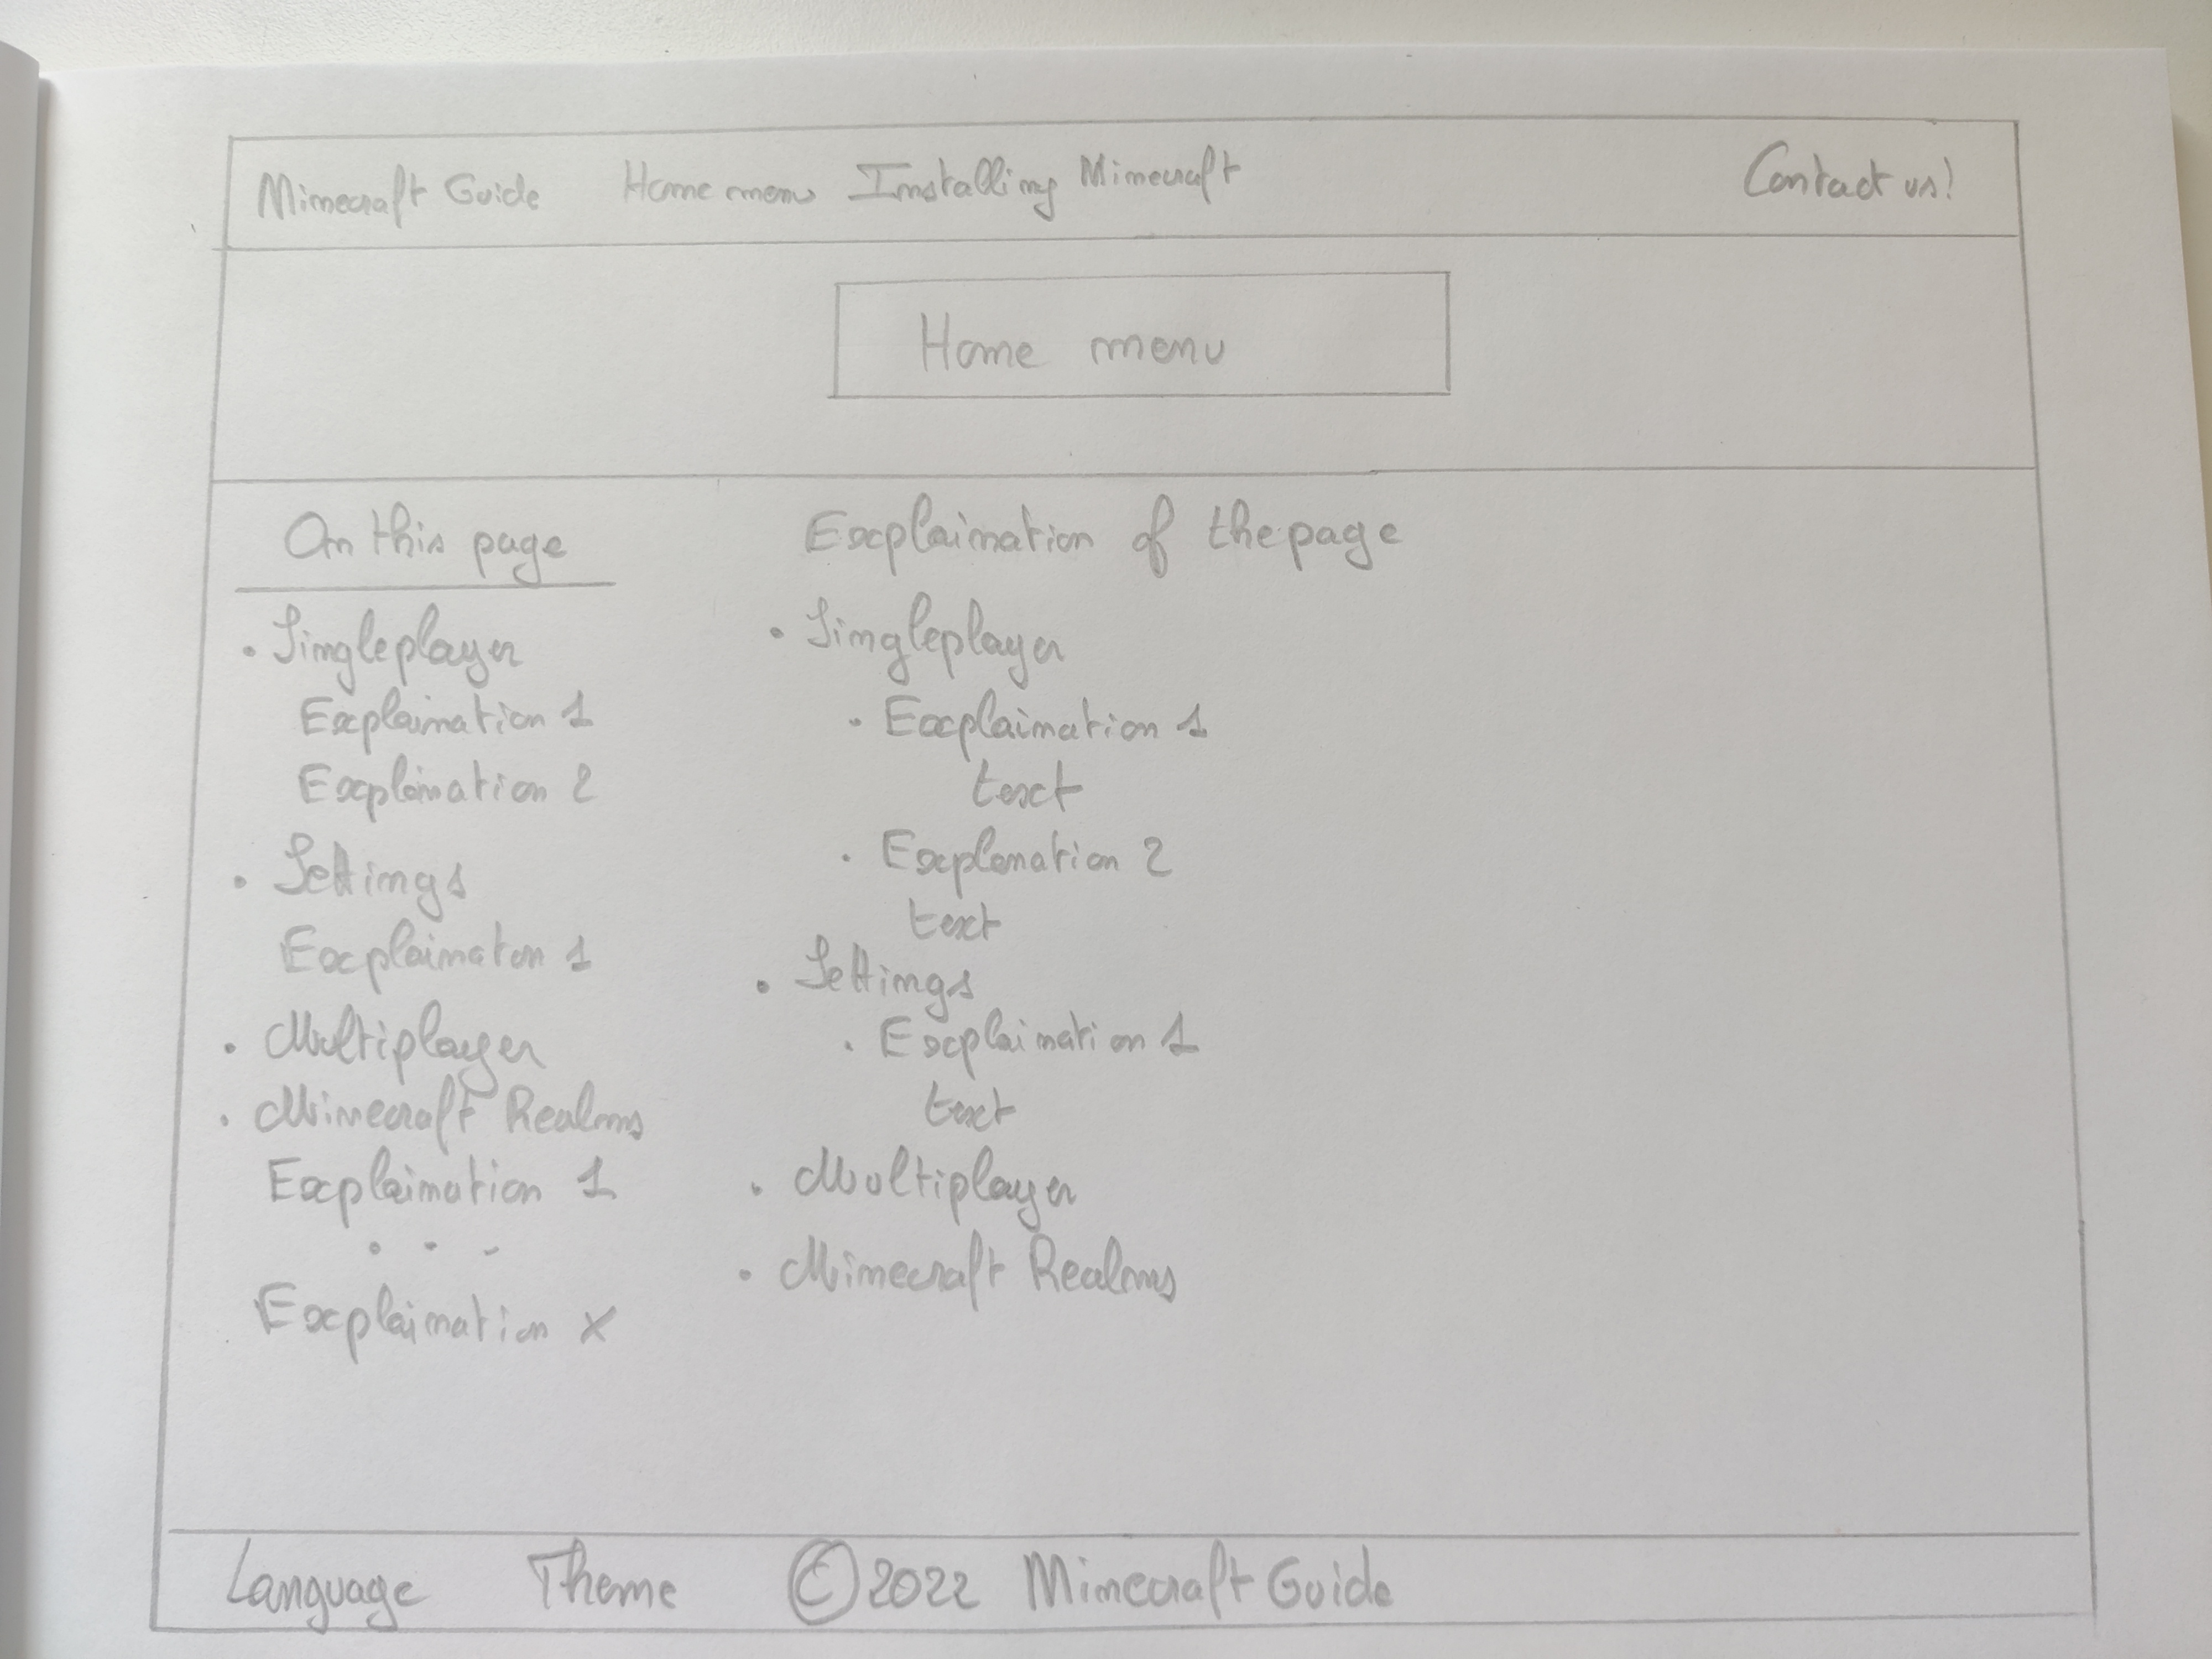 Minecraft Guide Home menu Installing Minecraft Contact us!
Home menu
On this page
• Singleplayer
Explaination 1
Explaination 2
• Settings
Explainaton 1
• Multiplayer
• Minecraft Realms
Explaination 1
. . .
Explaination x
Explaination of the page
• Singleplayer
• Explaination 1
text
• Explanation 2
text
• Settings
• Explaination 1
text
• Multiplayer
• Minecraft Realms
Language Theme © 2022 Minecraft Guide